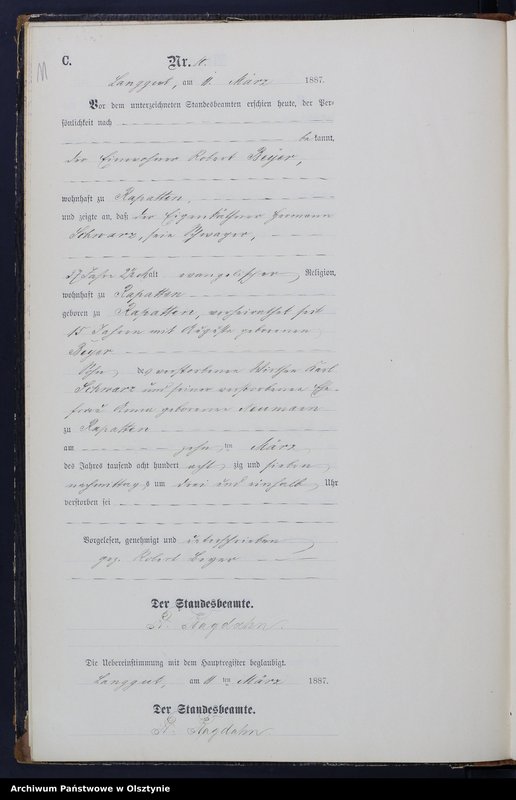 C.
Nr. 8.
Langgut, am 11. März 1887.
Vor dem unterzeichneten Standesbeamten erschien heute, der Per-
sönlichkeit nach
be kannt,
der Einwohner Robert Beyer,
wohnhaft zu Rapatten,
und zeigte an, daß der Eigenkäthner Hermann
Schwarz, sein Schwager,
37 Jahre alt evangelischer Religion,
wohnhaft zu Rapatten
geboren zu Rapatten, verheirathet seit
15 Jahren mit Auguste geborenen
Beyer
Sohn des verstorbenen Wirthen Karl
Schwarz und seiner verstorbenen Ehe-
frau Anna geborenen Neumann
zu Rapatten
am zehn ten März
des Jahres tausend acht hundert acht zig und sieben
nachmittags um drei und einhalb Uhr
verstorben sei
Vorgelesen, genehmigt und unterschrieben
gez. Robert Beyer
Der Standesbeamte.
Kagdahn.
Die Uebereinstimmung mit dem Hauptregister beglaubigt.
Langgut, am 11 ten März 1887.
Der Standesbeamte.
Kagdahn
Archiwum Państwowe w Olsztynie